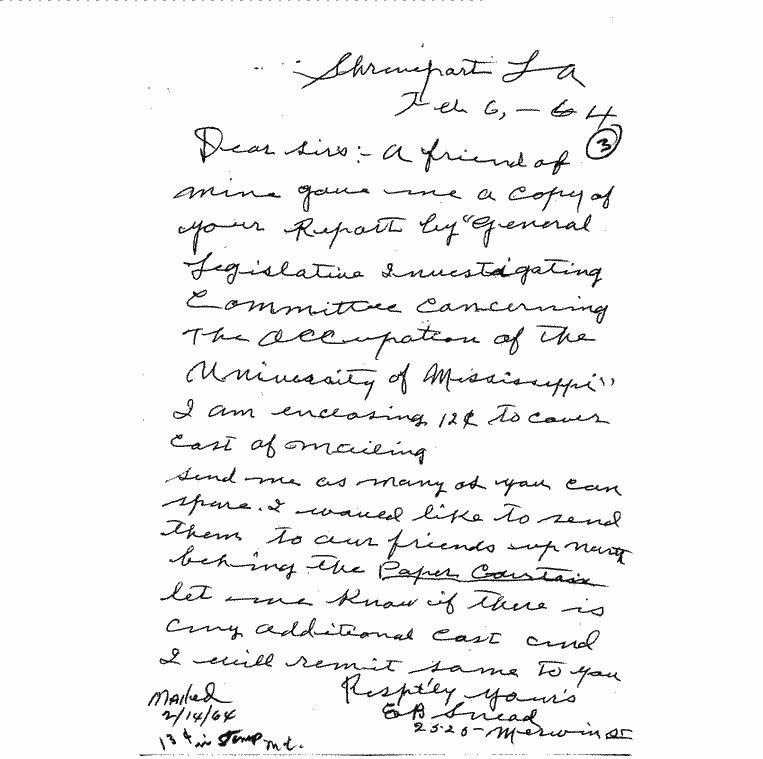 Shreveport La
Feb 6, - 64
3
Dear sirs:- A friend of
mine gave me a copy of
your Report by "General
Legislative Investigating
Committee concerning
The Occupation of the
University of Mississippi"
I am enclosing 12¢ to cover
cost of mailing
send me as many as you can
spare. I would like to send
them to our friends up north
behing the Paper Courtain
let me know if there is
any additional cost and
I will remit same to you
Resptly yours
E B Snead
2525- Merwin St
Mailed
2/14/64
13¢ in Stamp